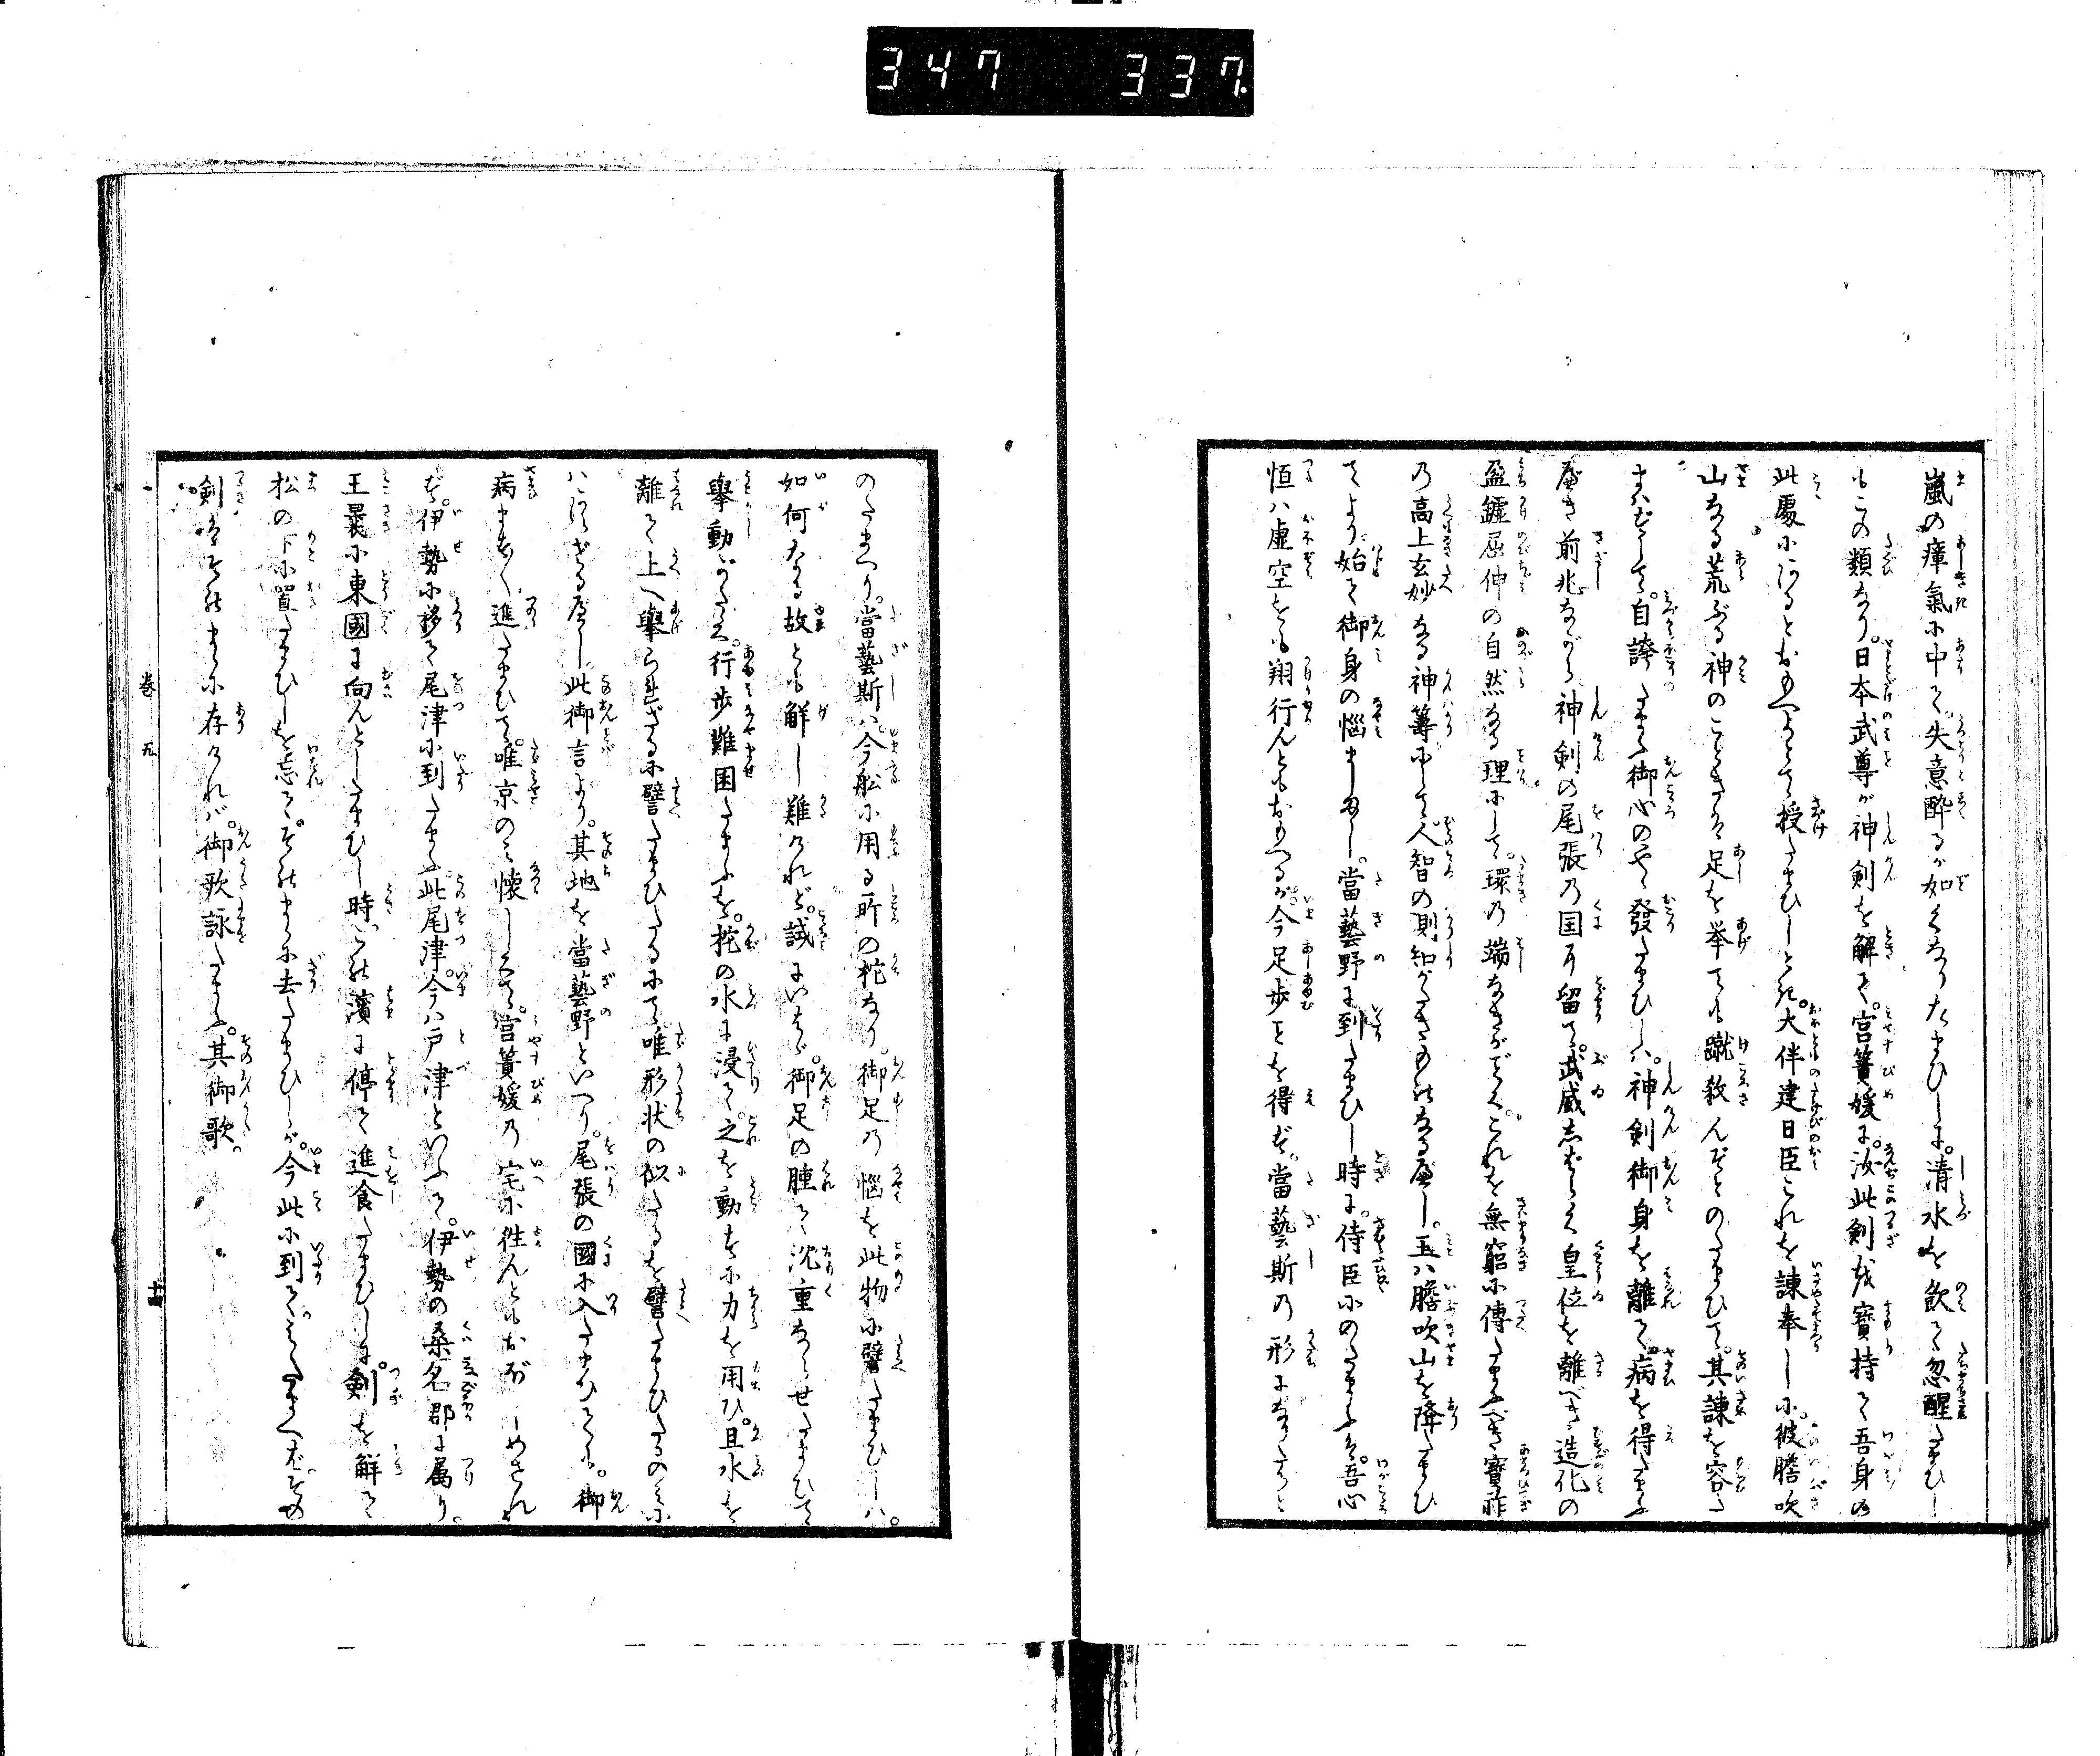 347 337
嵐の瘴氣に中て。失意酔るが如くなりたまひしに。清水を飲て忽醒たまひし
もこの類なり。日本武尊が神剣を解て。宮簀媛に。汝此剣を寳持て吾身の
此處にあるとおもへよとて授たまひしとき。大伴建日臣これを諫奉しに。彼膽吹
山なる荒ぶる神のごときは足を挙ても蹴殺んぞとのたまひて。其諫を容た
まはずして。自誇たまふ御心のや發たまひしハ。神剣御身を離て。病を得たまふ
べき前兆ながら神剣の尾張の国に留て。武威しばらく皇位を離べき造化の
盈鏬屈伸の自然なる理にして。環の端なきがごとく。これを無窮に傳たまふべき寳祚
の高上玄妙なる神籌にして人智の測知がたきものなるべし。玉ハ膽吹山を降たまひ
てより。始て御身の悩ましぬし。當藝野に到たまひし時に。侍臣にのたまふは。吾心
恒ハ虚空をも翔行んともおもへるが今足歩ことを得ず。當藝斯の形になりたりと
のたまへり。當藝斯ハ。今舩に用る所の柁なり。御足の悩を此物に譬たまひしハ。
如何なる故とも解し難けれど。誠にいはゞ。御足の腫て沈重ならせたまひて
擧動がたく。行歩難困たまふを。柁の水に浸て。之を動すに力を用ひ。且水を
離て上へ擧られざるに譬たまひたるにて唯形状の似たるを譬たまひたるのみに
ハあらざるべし。此御言より。其地を當藝野といへり。尾張の國に入たまひても。御
病ますく進たまひて。唯京のミ懐しくて。宮簀媛の宅に徃んともおぼしめされ
ず。伊勢に移て尾津に到たまふ。此尾津。今ハ戸津といふて。伊勢の桑名郡に属り。
王曩に東國に向んとしたまひし時。この濱に停て進食たまひしに。剣を解て
松の下に置たまひしを忘て。そのまゝに去たまひしが。今此に到て。みたまへば。その
剣はそのまゝに存ければ。御歌詠たまふ。其御歌。
巻九
十四